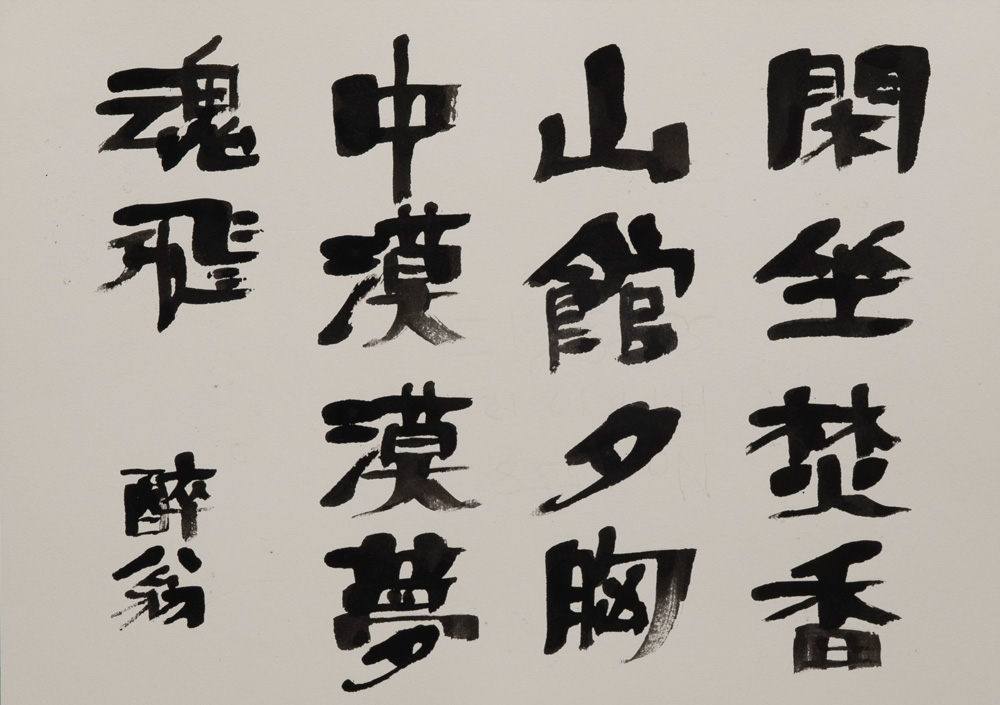 閑坐焚香
山館夕胸
中漠漠夢
魂飛
醉翁